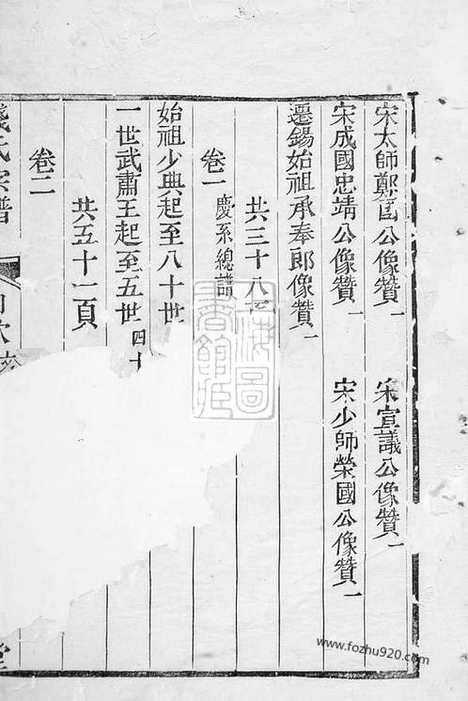 宋太師鄭國公像贊一 宋宣議公像贊一
宋成國忠靖公像贊一 宋少師榮國公像贊一
遷錫始祖承奉郎像贊一
共三十八頁
卷一 慶系總譜
始祖少典起至八十世
一世武肅王起至五世 四十
共五十一頁
卷二
錢氏宗譜 目次 堂
海圖書館藏
www.fozhu920.com